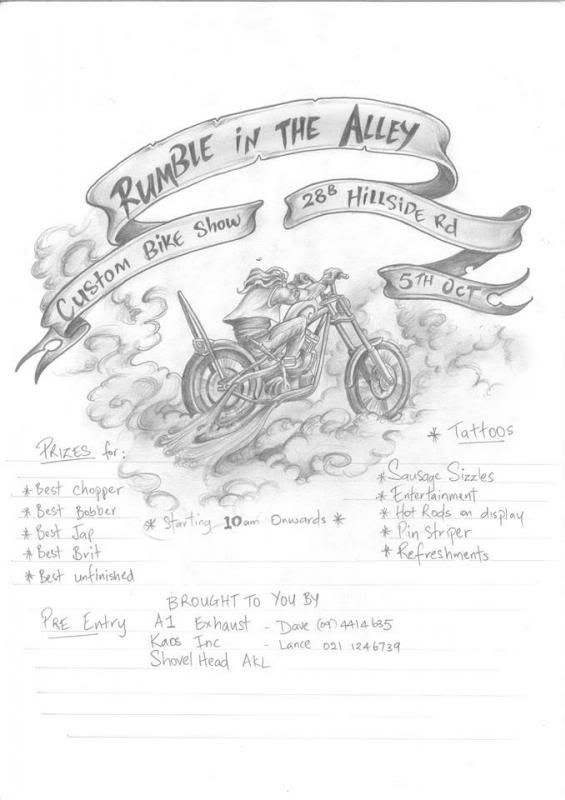 RUMBLE iN THE ALLEY
Custom Bike Show
28B HiLLSiDE Rd
5TH OCT
* Tattoos
PRIZES for:
* Best chopper
* Best Bobber
* Best Jap
* Best Brit
* Best unfinished
* Starting 10am Onwards *
* Sausage Sizzles
* Entertainment
* Hot Rods on display
* Pin Striper
* Refreshments
BROUGHT TO YOU BY
PRE Entry
A1 Exhaust - Dave (09) 4414 635
Kaos Inc - Lance 021 1246739
Shovel Head AKL